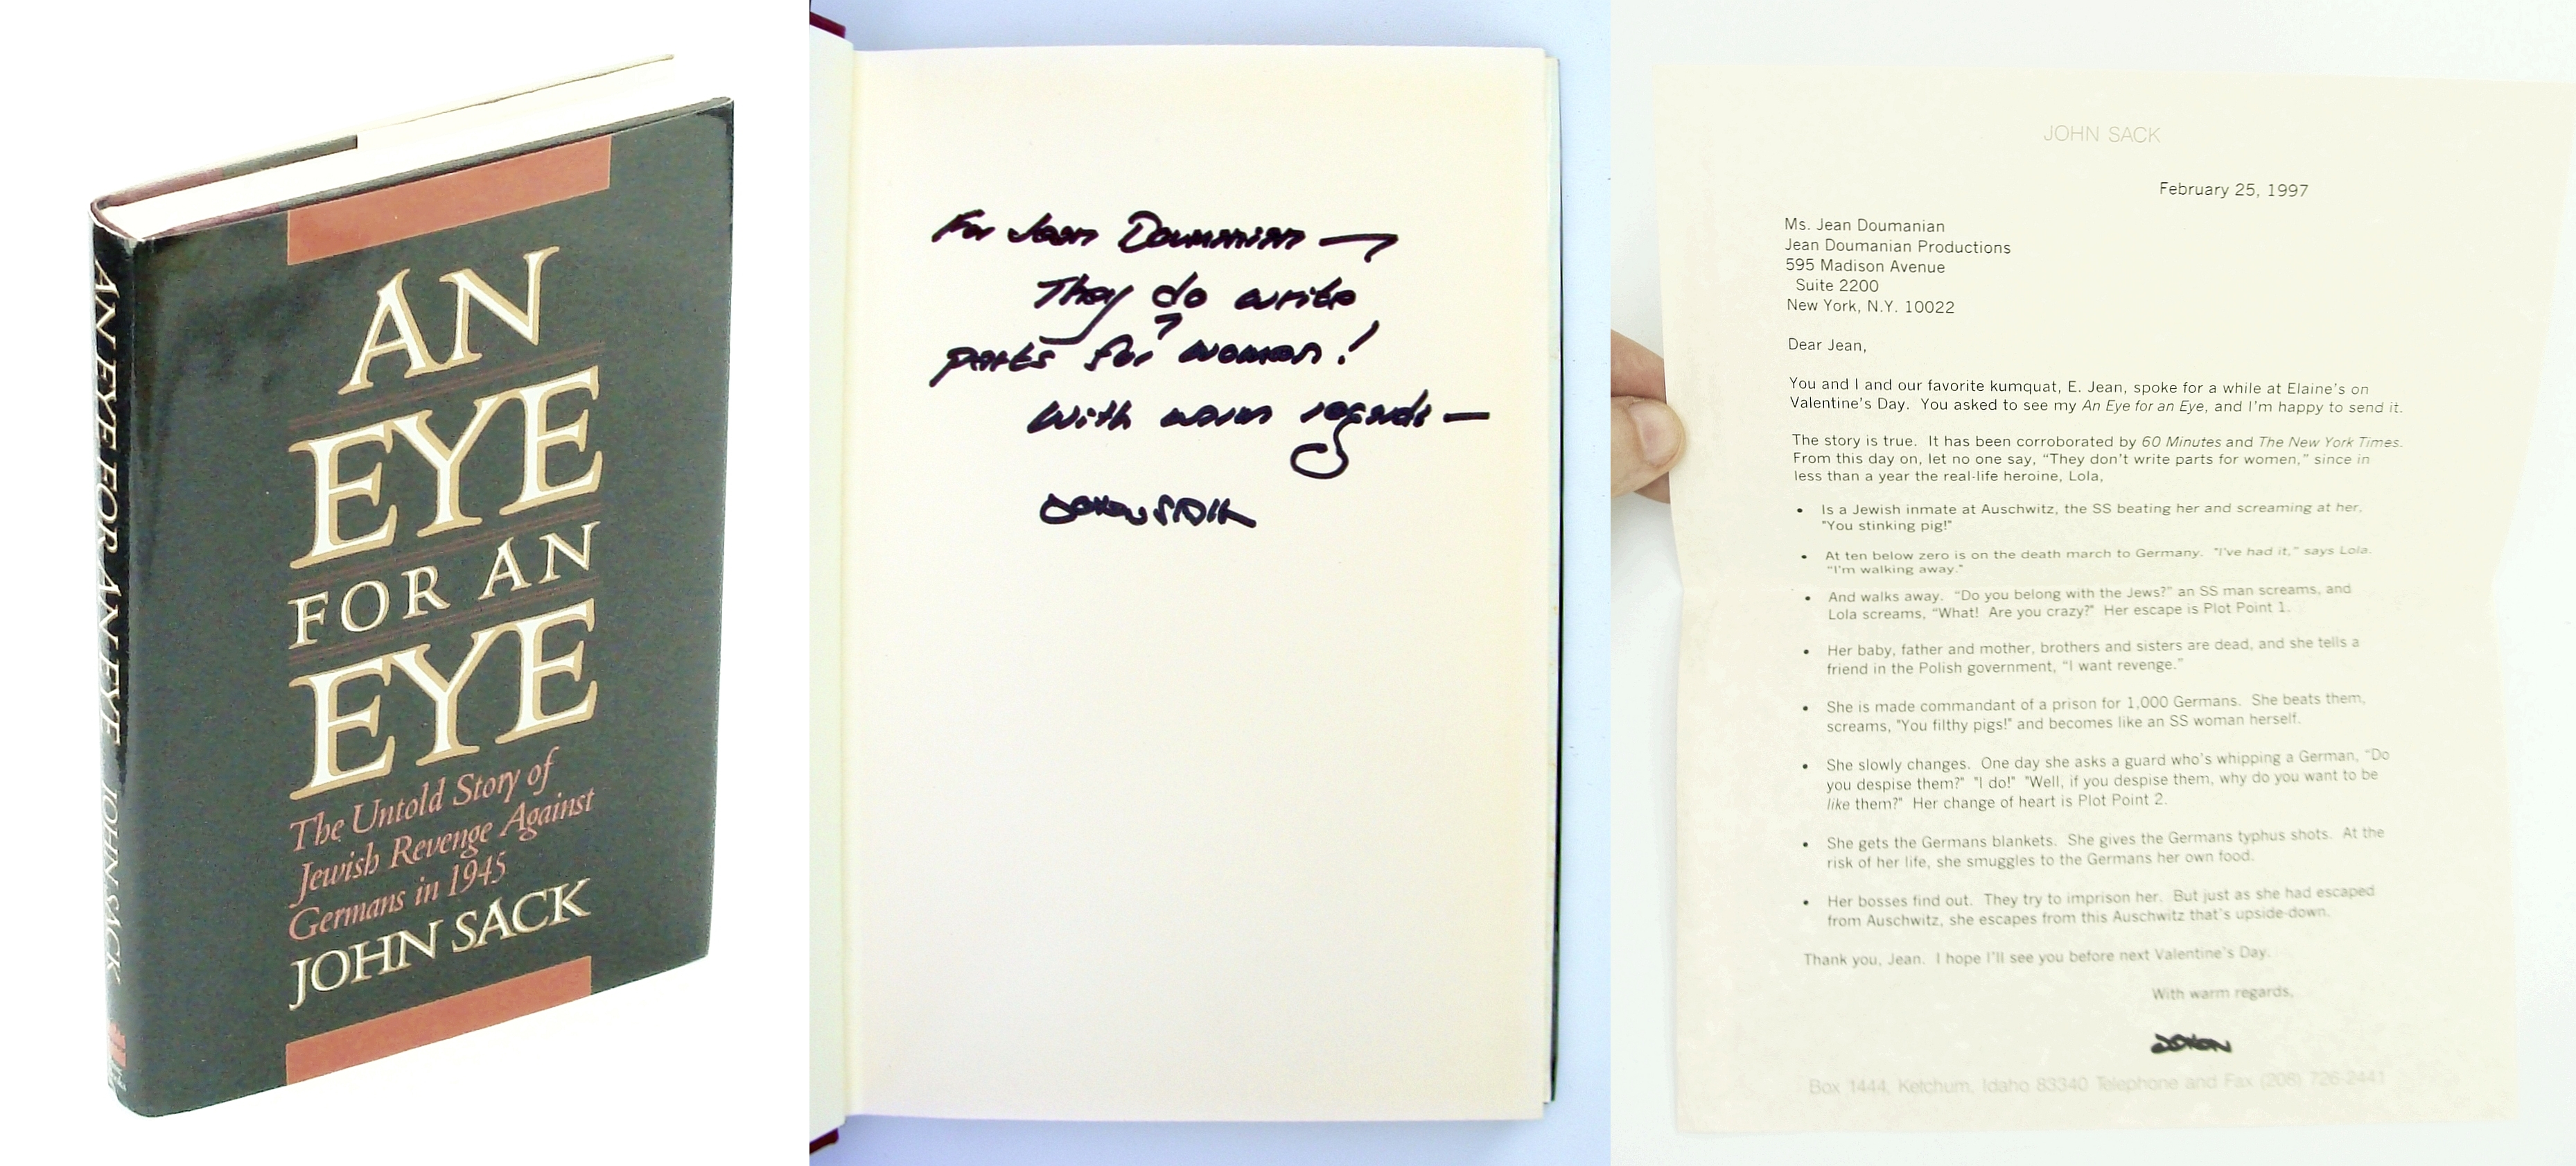 AN
EYE
FOR AN
EYE
The Untold Story of
Jewish Revenge Against
Germans in 1945
JOHN SACK
AN EYE FOR AN EYE JOHN SACK
For Jean Doumanian —
They do write
parts for women!
With warm regards —
John Sack
JOHN SACK
February 25, 1997
Ms. Jean Doumanian
Jean Doumanian Productions
595 Madison Avenue
Suite 2200
New York, N.Y. 10022
Dear Jean,
You and I and our favorite kumquat, E. Jean, spoke for a while at Elaine's on
Valentine's Day. You asked to see my An Eye for an Eye, and I'm happy to send it.
The story is true. It has been corroborated by 60 Minutes and The New York Times.
From this day on, let no one say, “They don't write parts for women,” since in
less than a year the real-life heroine, Lola,
• Is a Jewish inmate at Auschwitz, the SS beating her and screaming at her,
"You stinking pig!"
• At ten below zero is on the death march to Germany. "I've had it," says Lola.
“I'm walking away.”
• And walks away. “Do you belong with the Jews?” an SS man screams, and
Lola screams, “What! Are you crazy?” Her escape is Plot Point 1.
• Her baby, father and mother, brothers and sisters are dead, and she tells a
friend in the Polish government, “I want revenge.”
• She is made commandant of a prison for 1,000 Germans. She beats them,
screams, "You filthy pigs!" and becomes like an SS woman herself.
• She slowly changes. One day she asks a guard who's whipping a German, “Do
you despise them?" "I do!" "Well, if you despise them, why do you want to be
like them?" Her change of heart is Plot Point 2.
• She gets the Germans blankets. She gives the Germans typhus shots. At the
risk of her life, she smuggles to the Germans her own food.
• Her bosses find out. They try to imprison her. But just as she had escaped
from Auschwitz, she escapes from this Auschwitz that's upside-down.
Thank you, Jean. I hope I'll see you before next Valentine's Day.
With warm regards,
John
Box 1444, Ketchum, Idaho 83340 Telephone and Fax (208) 726-2441